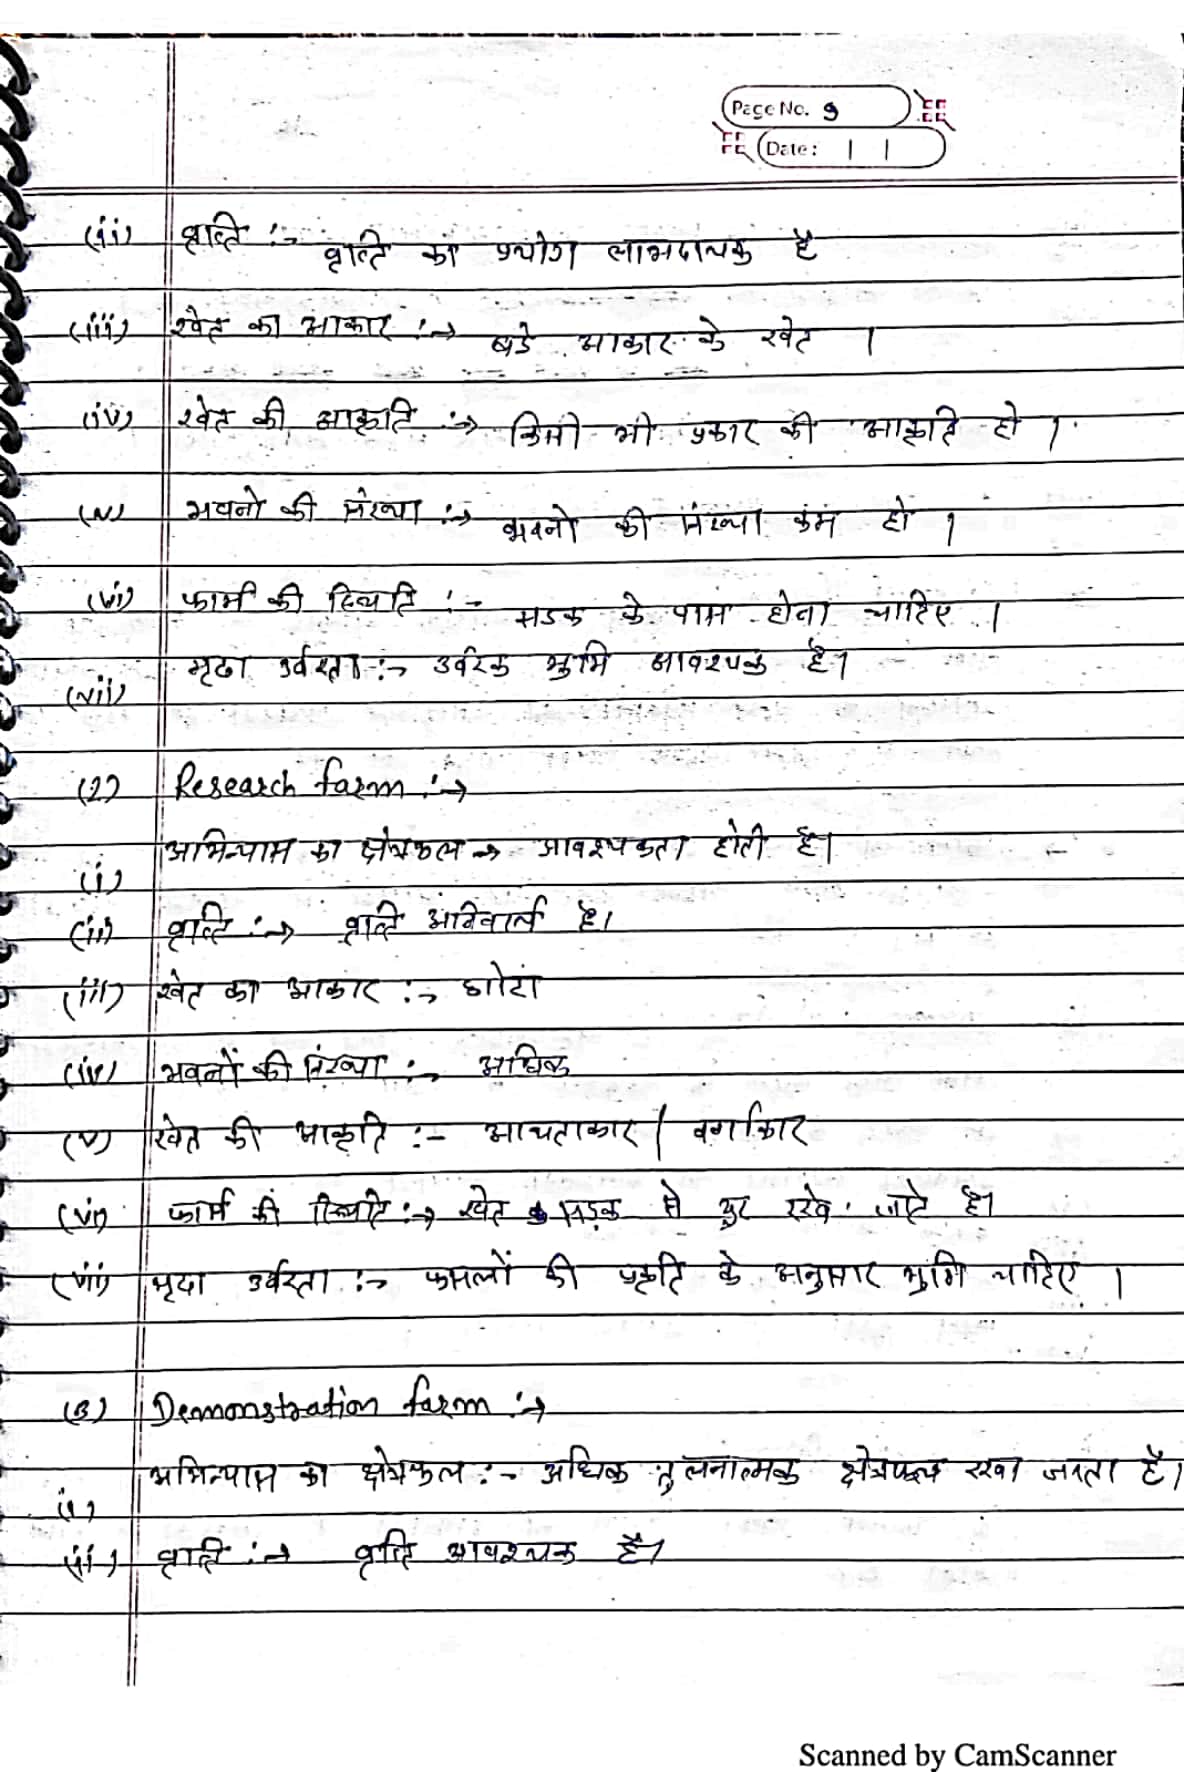 Page No. 9
Date: | |
(ii) वृत्ति :- वृत्ति का प्रयोग लाभदायक है
(iii) खेत का आकार :→ बडे आकार के खेत ।
(iv) खेत की आकृति :→ किसी भी प्रकार की आकृति हो ।
(v) भवनो की संख्या :→ भवनो की संख्या कम हो ।
(vi) फार्म की स्थिति :- सडक के पास होना चाहिए ।
(vii) मृदा उर्वरता :- उर्वरक भुमि आवश्यक है।
(2) Research farm :→
(i) अभिन्यास का क्षेत्रफल → आवश्यकता होती है।
(ii) वृत्ति :→ वृत्ति अनिवार्य है।
(iii) खेत का आकार :- छोटा
(iv) भवनों की संख्या :- अधिक
(v) खेत की आकृति :- आयताकार / वर्गाकार
(vi) फार्म की स्थिति :→ खेत सड़क से दुर रखे जाते है।
(vii) मृदा उर्वरता :- फसलों की प्रकृति के अनुसार भुमि चाहिए ।
(3) Demonstration farm :→
(i) अभिन्यास का क्षेत्रफल :- अधिक तुलनात्मक क्षेत्रफल रखा जाता है।
(ii) वृत्ति :→ वृत्ति आवश्यक है।
Scanned by CamScanner